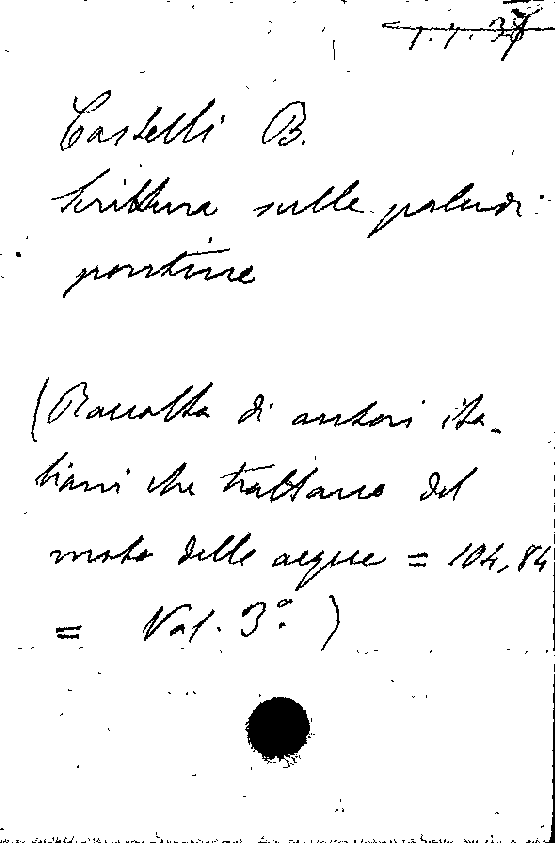 Castelli B.
Scrittura sulle paludi
pontine
(Raccolta di autori ita-
liani che trattano del
moto delle acque = 104,84
= Vol. 3° )